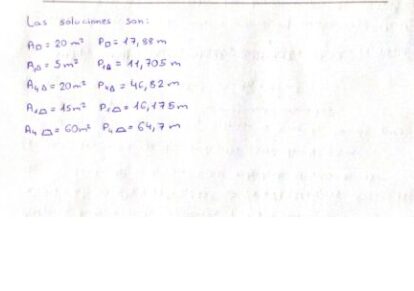 Las soluciones son:
A□ = 20 m² P□ = 17,88 m
A₁△ = 5 m² P₁△ = 11,705 m
A₄△ = 20 m² P₄△ = 46,82 m
A₁⏢ = 15 m² P₁⏢ = 16,175 m
A₄⏢ = 60 m² P₄⏢ = 64,7 m